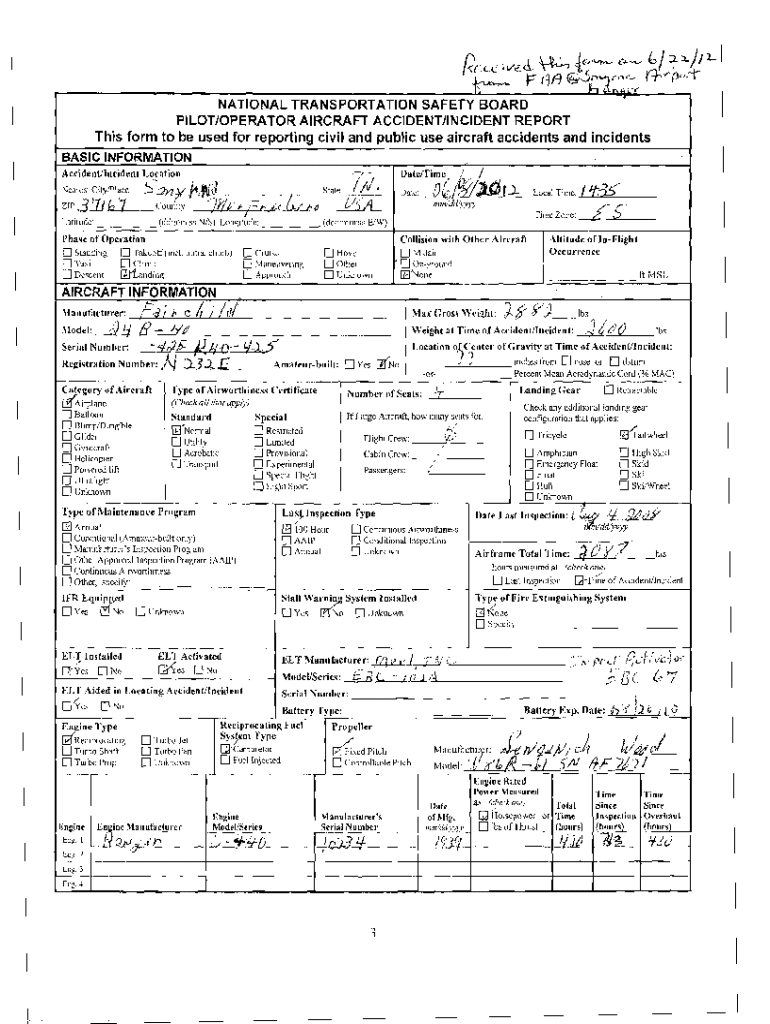 Received this form on 6/22/12
from FAA @ Smyrna Airport
hanger
NATIONAL TRANSPORTATION SAFETY BOARD
PILOT/OPERATOR AIRCRAFT ACCIDENT/INCIDENT REPORT
This form to be used for reporting civil and public use aircraft accidents and incidents
BASIC INFORMATION
Accident/Incident Location
Nearest City/Place State TN.
ZIP 37167 Country USA
Latitude (ddmmss N/S) Longitude (dddmmss E/W)
Date/Time
Date: 2012 Local Time: 1435
mm/dd/yyyy
Time Zone: ES
Phase of Operation
Standing Takeoff (incl. initial climb) Cruise Hover
Taxi Climb Maneuvering Other
Descent Landing Approach Unknown
Collision with Other Aircraft
Midair
On-ground
None
Altitude of In-Flight
Occurrence
ft MSL
AIRCRAFT INFORMATION
Manufacturer: Fairchild
Model: 24 R-40
Serial Number: R40-425
Registration Number: N 232E Amateur-built: Yes No
Max Gross Weight: 2882 lbs
Weight at Time of Accident/Incident: 2600 lbs
Location of Center of Gravity at Time of Accident/Incident:
?? inches from nose or datum
-or- Percent Mean Aerodynamic Cord (% MAC)
Category of Aircraft
Airplane
Balloon
Blimp/Dirigible
Glider
Gyrocraft
Helicopter
Powered lift
Ultralight
Unknown
Type of Airworthiness Certificate
(Check all that apply)
Standard Special
Normal Restricted
Utility Limited
Acrobatic Provisional
Transport Experimental
Special Flight
Light Sport
Number of Seats: 4
If Large Aircraft, how many seats for:
Flight Crew:
Cabin Crew:
Passengers:
Landing Gear Retractable
Check any additional landing gear
configuration that applies:
Tricycle Tailwheel
Amphibian High Skid
Emergency Float Skid
Float Ski
Hull Ski/Wheel
Unknown
Type of Maintenance Program
Annual
Conditional (Amateur-built only)
Manufacturer's Inspection Program
Other Approved Inspection Program (AAIP)
Continuous Airworthiness
Other, specify:
Last Inspection Type
100 Hour Continuous Airworthiness
AAIP Conditional Inspection
Annual Unknown
Date Last Inspection: Aug 4, 2008
mm/dd/yyyy
Airframe Total Time: 2087 hrs
hours measured at (check one)
Last Inspection Time of Accident/Incident
IFR Equipped
Yes No Unknown
Stall Warning System Installed
Yes No Unknown
Type of Fire Extinguishing System
None
Specify
ELT Installed ELT Activated
Yes No Yes No
ELT Aided in Locating Accident/Incident
Yes No
ELT Manufacturer: INC
Model/Series: EBC-102A EBC 67
Serial Number:
Battery Type: Battery Exp. Date:
Engine Type
Reciprocating Turbo Jet
Turbo Shaft Turbo Fan
Turbo Prop Unknown
Reciprocating Fuel
System Type
Carburetor
Fuel Injected
Propeller
Fixed Pitch
Controllable Pitch
Manufacturer: Sensenich
Model:
Engine Engine Manufacturer
Engine
Model/Series
Manufacturer's
Serial Number
Date
of Mfg.
mm/dd/yyyy
Engine Rated
Power Measured
as (check one)
Horsepower or
lbs of Thrust
Total
Time
(hours)
Time
Since
Inspection
(hours)
Time
Since
Overhaul
(hours)
Eng. 1 L-440 10234 1939 430 430
Eng. 2
Eng. 3
Eng. 4
3